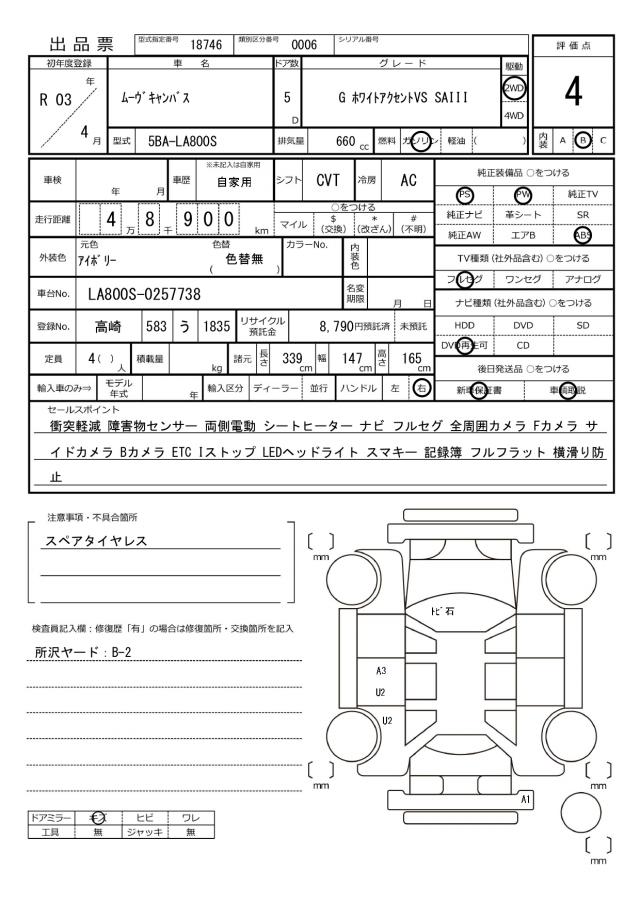 出品票 型式指定番号 18746 類別区分番号 0006 シリアル番号
評価点
4
初年度登録 車名 ドア数 グレード 駆動
R 03 年 4 月 ムーヴキャンバス 5 D G ホワイトアクセントVS SAIII 2WD 4WD
型式 5BA-LA800S 排気量 660 cc 燃料 ガソリン 軽油 ( ) 内装 A B C
車検 年 月 車歴 ※未記入は自家用 自家用 シフト CVT 冷房 AC
走行距離 4 万 8 千 9 0 0 km
○をつける
マイル $ (交換) * (改ざん) # (不明)
外装色 元色 アイボリー 色替 色替無 ( ) カラーNo. 内装色
車台No. LA800S-0257738 名変期限 月 日
登録No. 高崎 583 う 1835 リサイクル預託金 8,790円預託済 未預託
定員 4( ) 人 積載量 kg 諸元 長さ 339 cm 幅 147 cm 高さ 165 cm
輸入車のみ⇒ モデル年式 年 輸入区分 ディーラー 並行 ハンドル 左 右
純正装備品 ○をつける
PS PW 純正TV
純正ナビ 革シート SR
純正AW エアB ABS
TV種類 (社外品含む) ○をつける
フルセグ ワンセグ アナログ
ナビ種類 (社外品含む) ○をつける
HDD DVD SD
DVD再生可 CD
後日発送品 ○をつける
新車保証書 車輌取説
セールスポイント
衝突軽減 障害物センサー 両側電動 シートヒーター ナビ フルセグ 全周囲カメラ Fカメラ サ
イドカメラ Bカメラ ETC Iストップ LEDヘッドライト スマキー 記録簿 フルフラット 横滑り防
止
注意事項・不具合箇所
スペアタイヤレス
検査員記入欄：修復歴「有」の場合は修復箇所・交換箇所を記入
所沢ヤード：B-2
ドアミラー キズ ヒビ ワレ
工具 無 ジャッキ 無
mm
mm
トビ石
A3
U2
U2
mm
mm
A1
mm